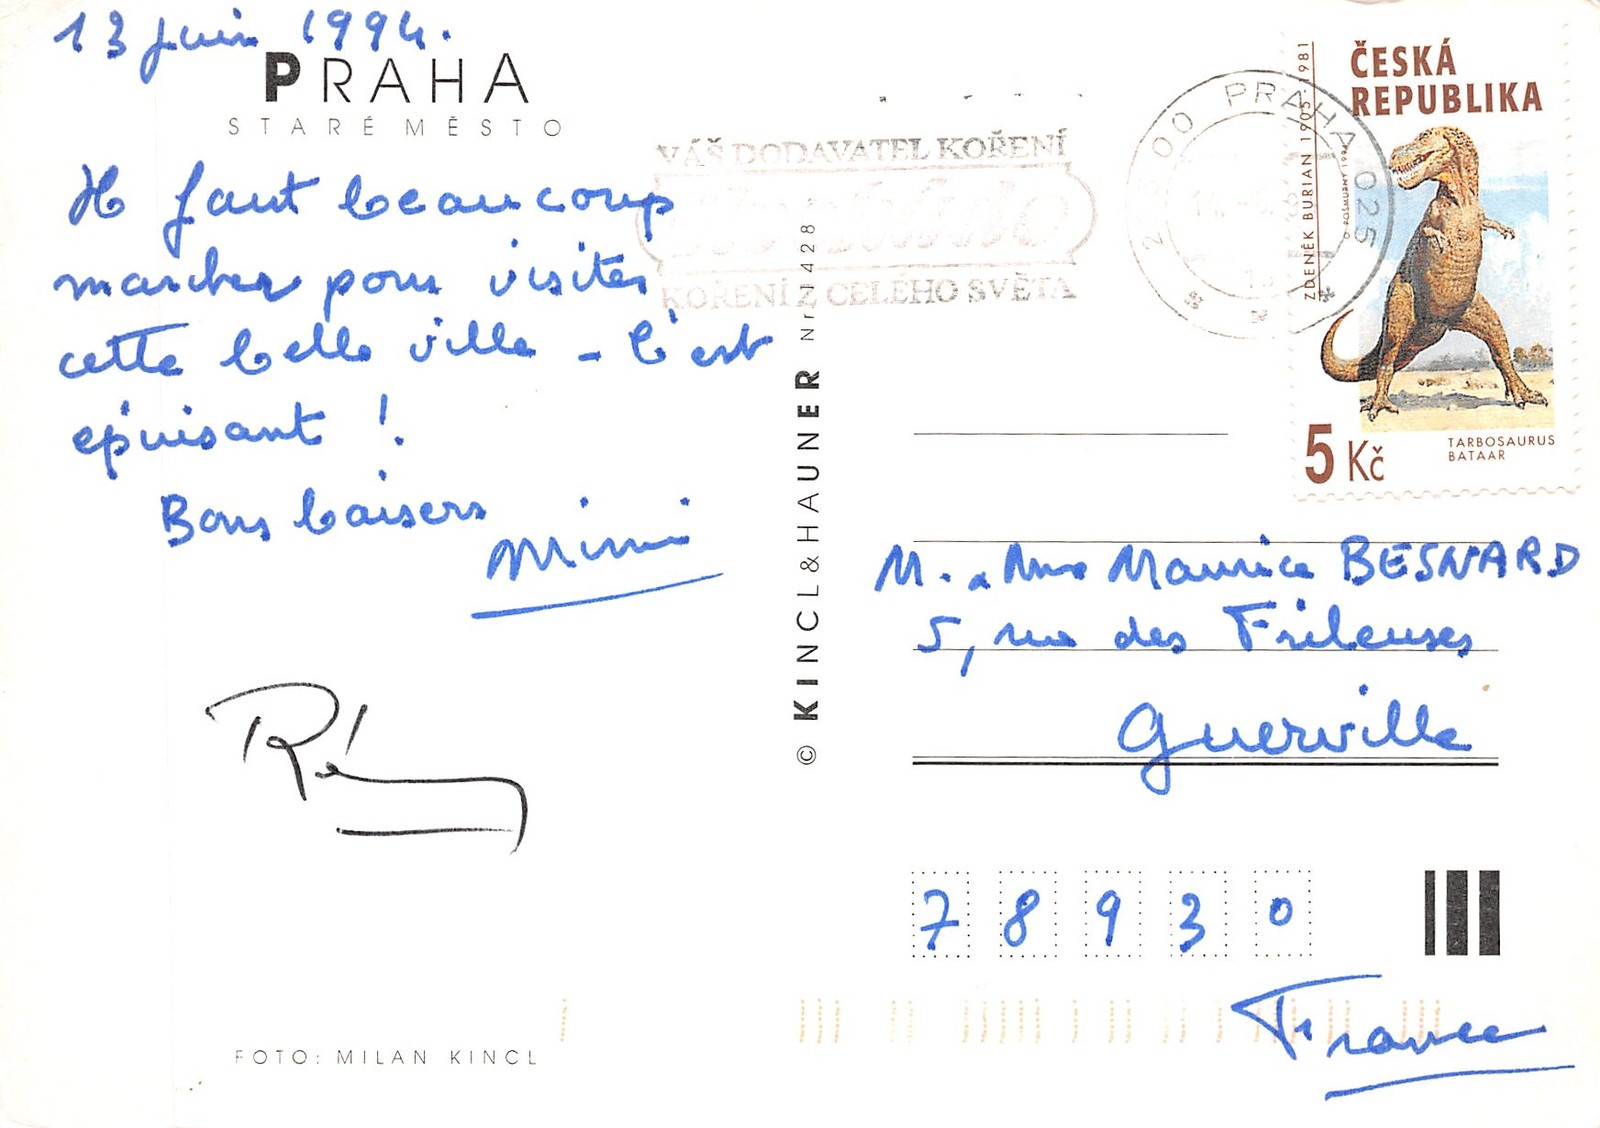 13 juin 1994.
PRAHA
STARÉ MĚSTO
Il faut beaucoup
marcher pour visiter
cette belle ville - C'est
épuisant !
Bons baisers
Mimi
Ré
FOTO: MILAN KINCL
© KINCL & HAUNER Nr. 1428
VÁŠ DODAVATEL KOŘENÍ
KOŘENÍ Z CELÉHO SVĚTA
PRAHA 025
ČESKÁ
REPUBLIKA
ZDENĚK BURIAN 1905-1981
5 Kč
TARBOSAURUS
BATAAR
M. & Mme Maurice BESNARD
5, rue des Frileuses
Guerville
78930
France